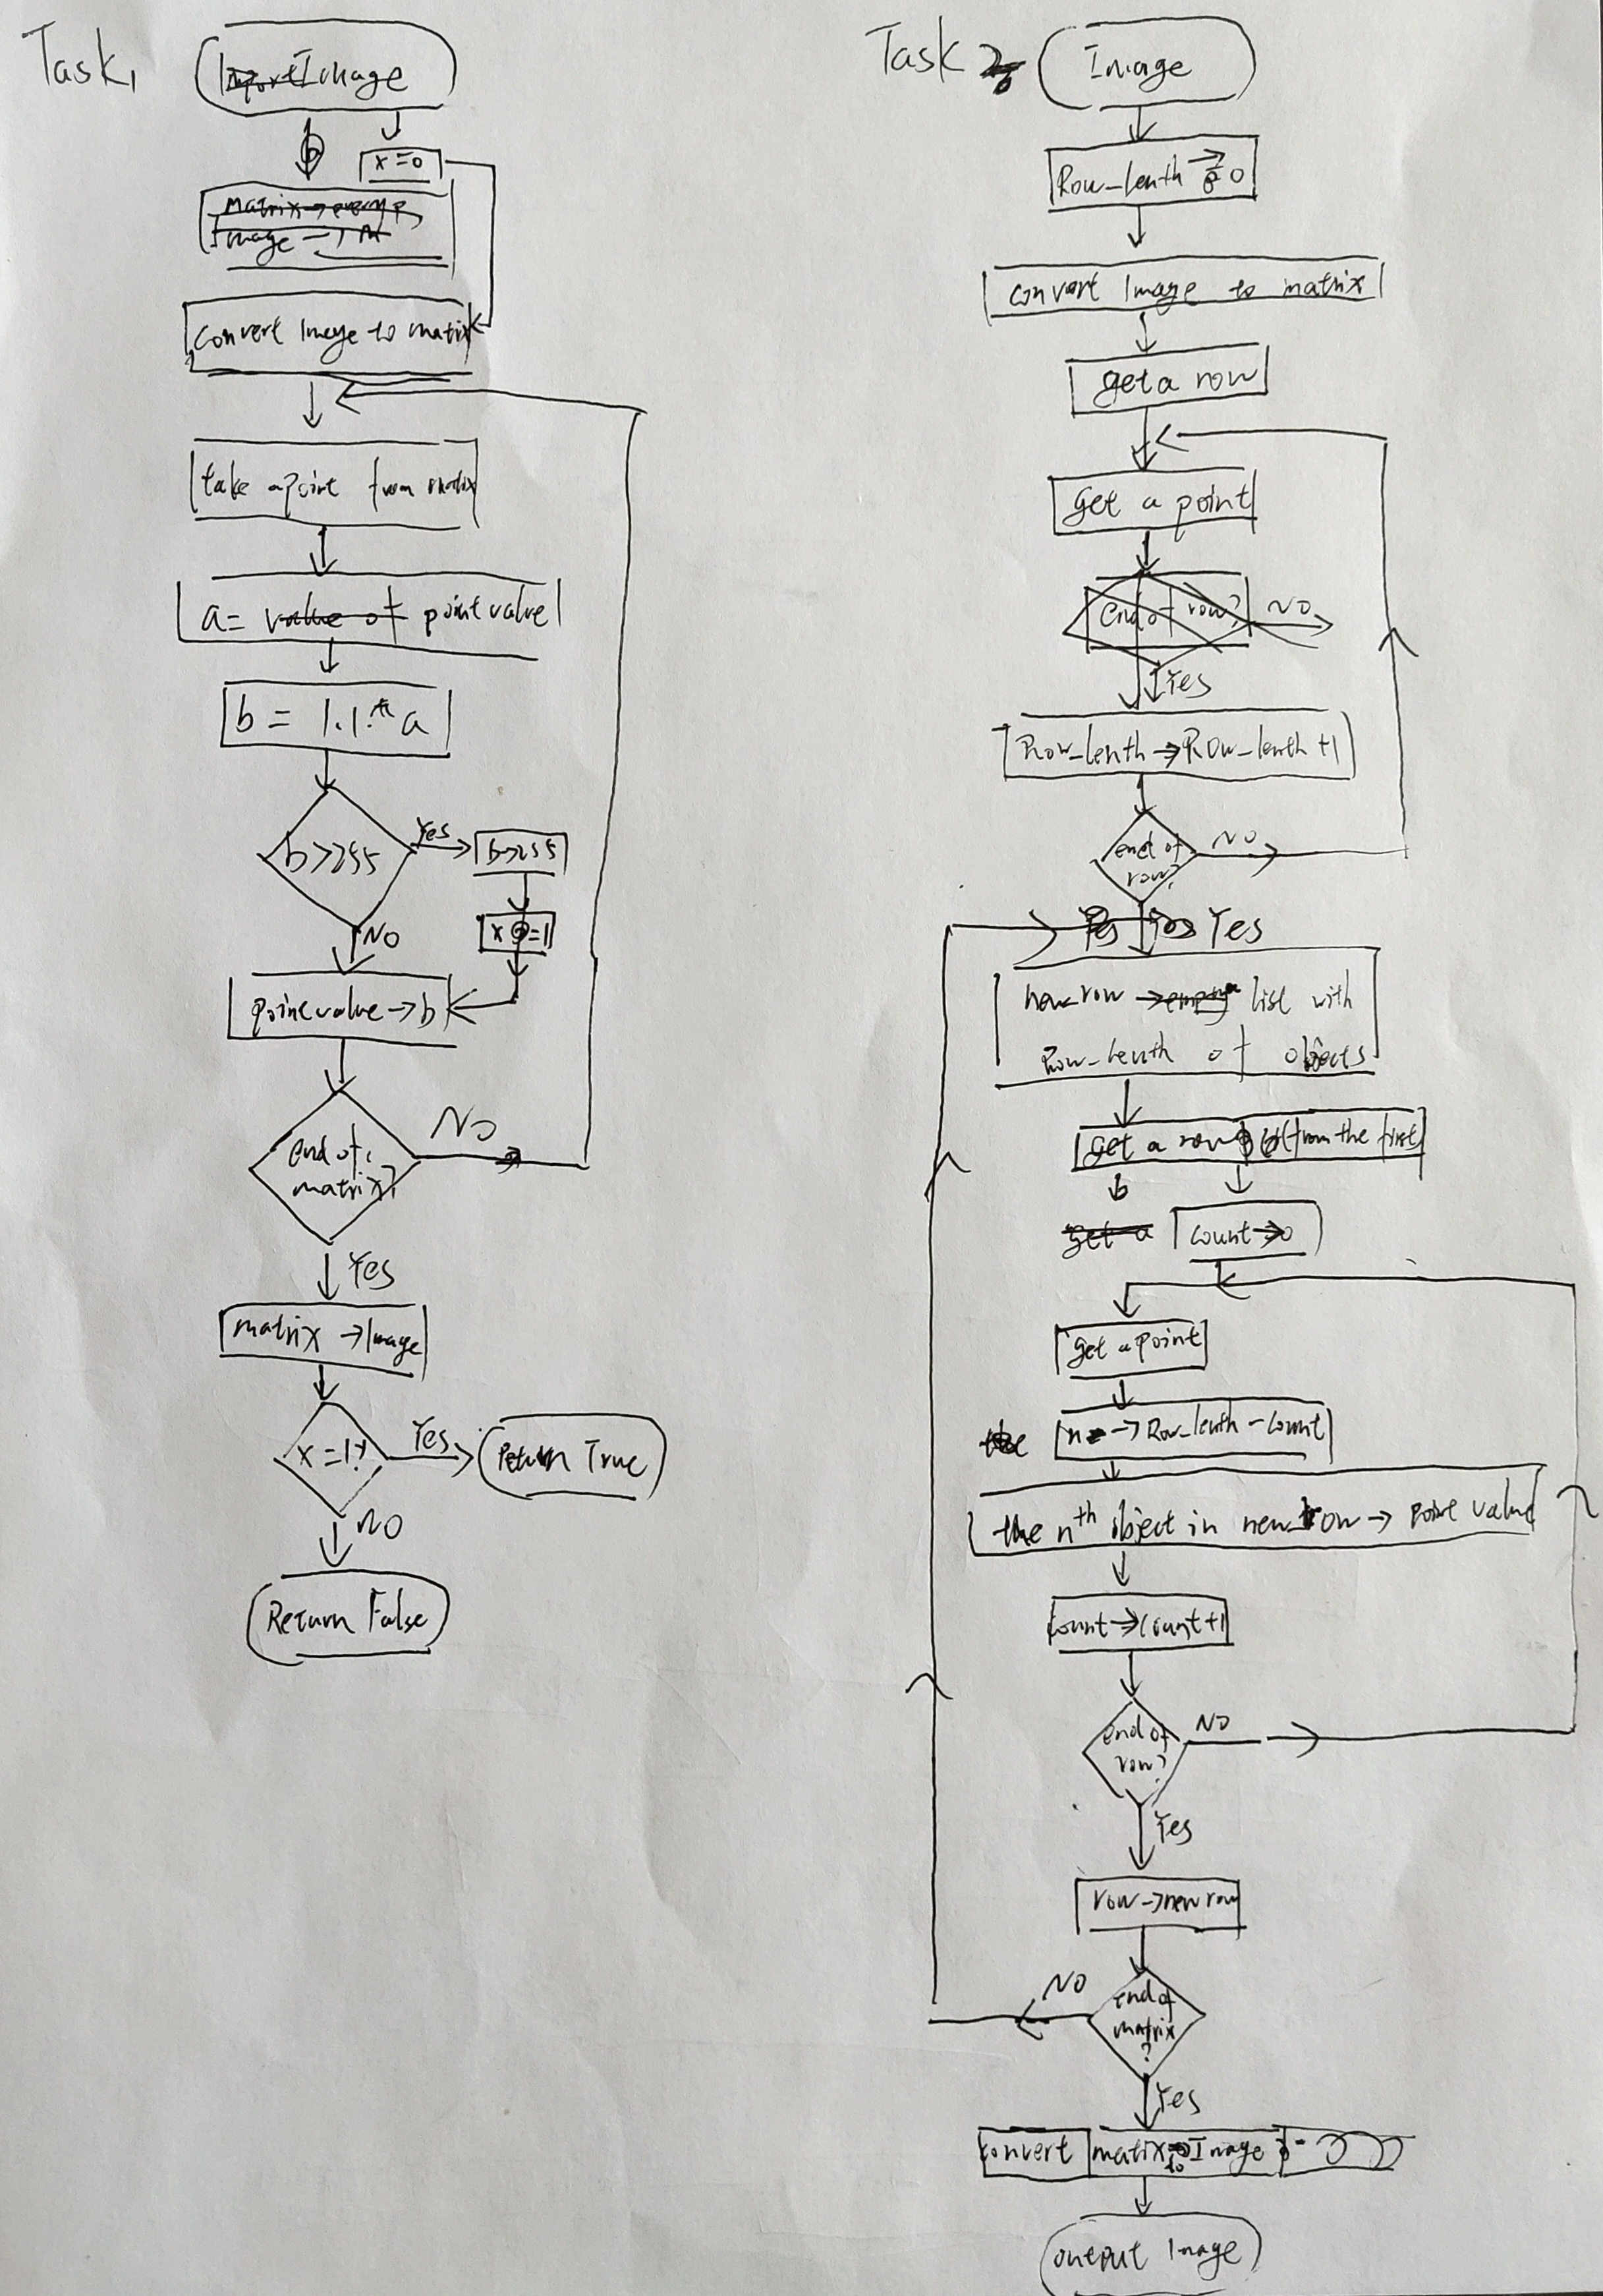 Task1
Image
x=0
Convert Image to matrix
take a point from matrix
a= point value
b = 1.1 * a
b>255
Yes
b→255
x=1
NO
point value→b
end of
matrix?
NO
Yes
matrix →Image
x=1?
Yes
Return True
NO
Return False
Task 2
Image
Row_lenth → 0
Convert Image to matrix
get a row
get a point
Row_lenth →Row_lenth +1
end of
row?
NO
Yes
new_row → a list with
Row_lenth of objects
get a row (from the first)
count→0
get a point
n→Row_lenth - count
the nth object in new_row → point value
count→count+1
end of
row?
NO
Yes
row→new row
end of
matrix
?
NO
Yes
convert matix to Image
output Image